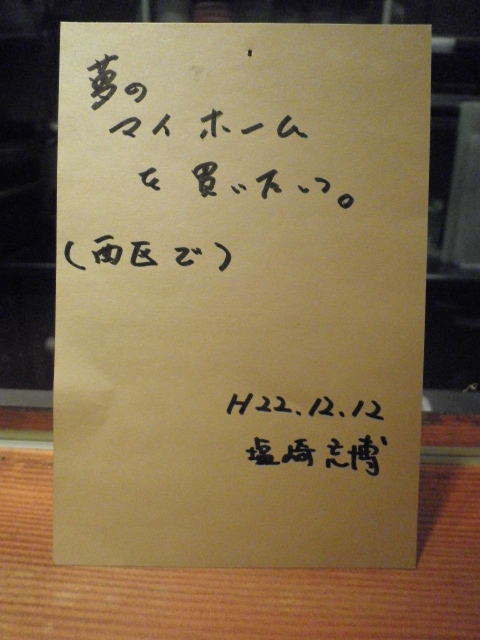 夢の
マイホーム
を買いたい。
(西区で)
H22.12.12
塩崎 博